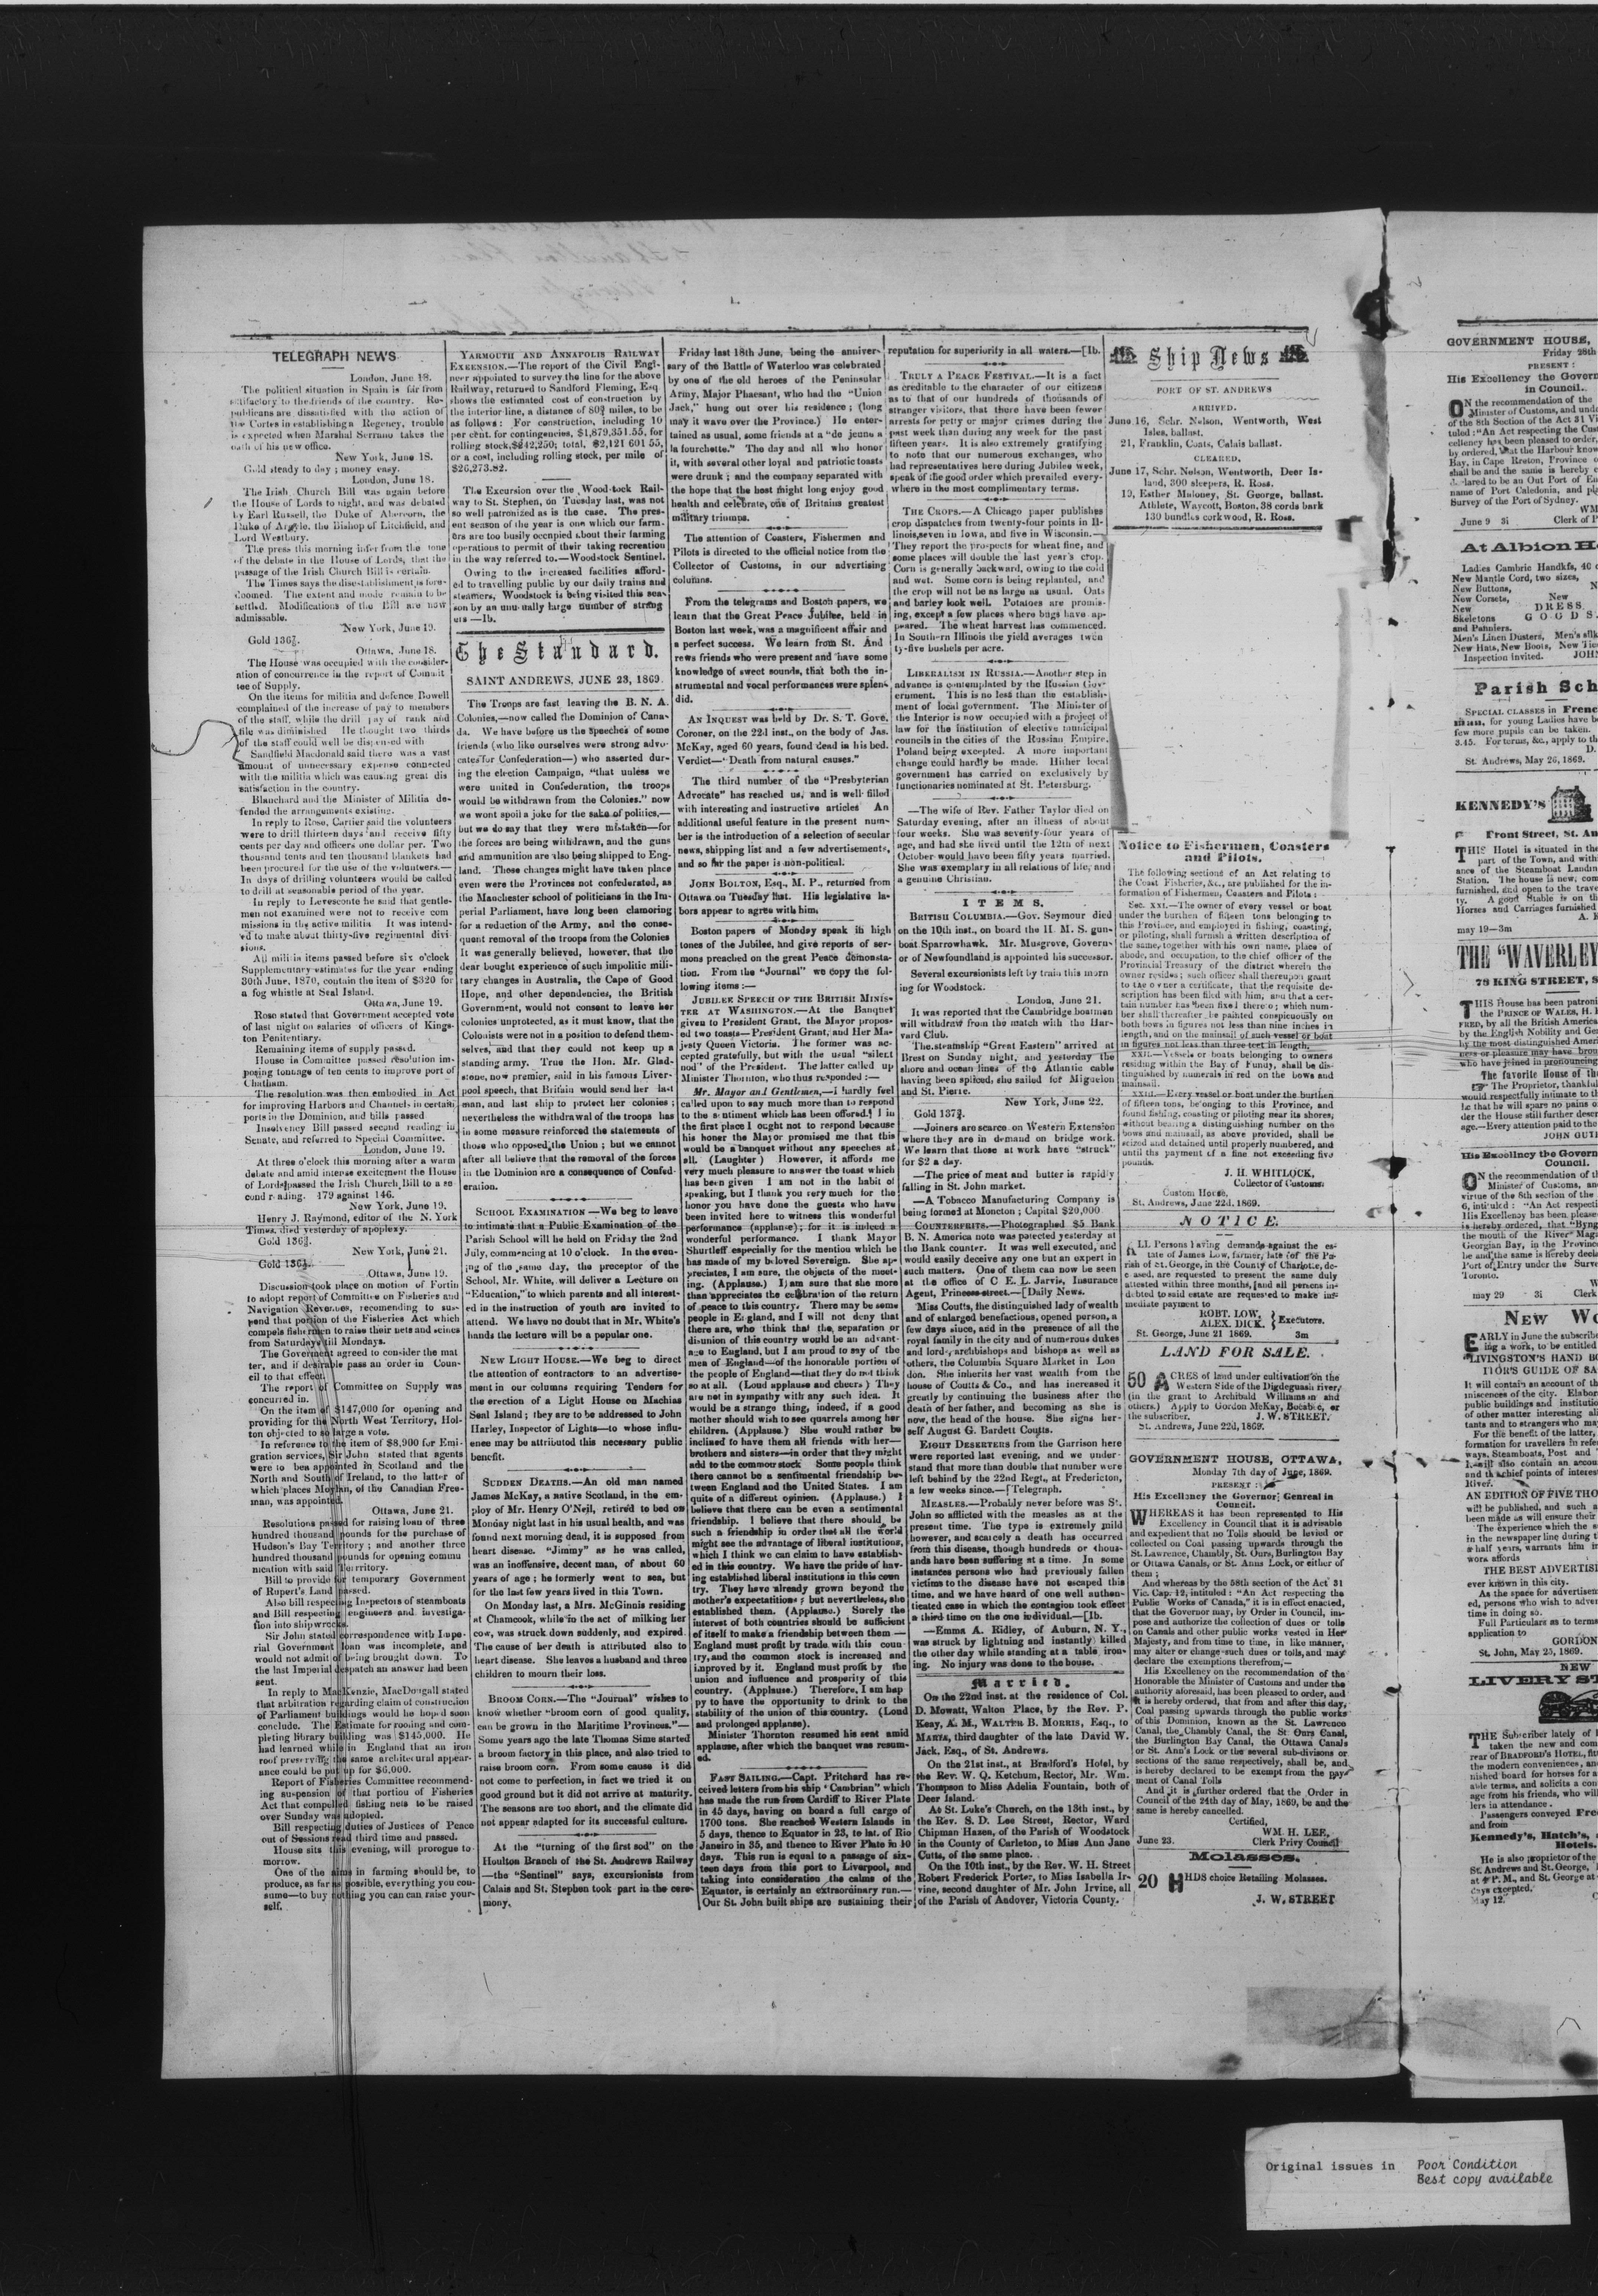 TELEGRAPH NEWS
London, June 18.
The political situation in Spain is far from
satisfactory to the friends of the country. Re-
publicans are dissatisfied with the action of
the Cortes in establishing a Regency, trouble
is expected when Marshal Serrano takes the
oath of his new office.
New York, June 18.
Gold steady to day; money easy.
London, June 18.
The Irish Church Bill was again before
the House of Lords to night, and was debated
by Earl Russell, the Duke of Abercorn, the
Duke of Argyle, the Bishop of Litchfield, and
Lord Westbury.
The press this morning infer from the tone
of the debate in the House of Lords, that the
passage of the Irish Church Bill is certain.
The Times says the disestablishment is fore-
doomed. The extent and mode remain to be
settled. Modifications of the Bill are now
admissable.
New York, June 19.
Gold 136⅞.
Ottawa, June 18.
The House was occupied with the consider-
ation of concurrence in the report of Commit
tee of Supply.
On the items for militia and defence Bowell
complained of the increase of pay to members
of the staff, while the drill pay of rank and
file was diminished He thought two thirds
of the staff could well be dispensed with
Sandfield Macdonald said there was a vast
amount of unnecessary expense connected
with the militia which was causing great dis
satisfaction in the country.
Blanchard and the Minister of Militia de-
fended the arrangements existing.
In reply to Rose, Cartier said the volunteers
were to drill thirteen days and receive fifty
cents per day and officers one dollar per. Two
thousand tents and ten thousand blankets had
been procured for the use of the volunteers.—
In days of drilling volunteers would be called
to drill at seasonable period of the year.
In reply to Levesconte he said that gentle-
men not examined were not to receive com
missions in the active militia It was intend-
ed to make about thirty-five regimental divi
sions.
All militia items passed before six o'clock
Supplementary estimates for the year ending
30th June, 1870, contain the item of $320 for
a fog whistle at Seal Island.
Ottawa, June 19.
Rose stated that Government accepted vote
of last night on salaries of officers of Kings-
ton Penitentiary.
Remaining items of supply passed.
House in Committee passed resolution im-
posing tonnage of ten cents to improve port of
Chatham.
The resolution was then embodied in Act
for improving Harbors and Channels in certain
ports in the Dominion, and bills passed
Insolvency Bill passed second reading in
Senate, and referred to Special Committee.
London, June 19.
At three o'clock this morning after a warm
debate and amid intense excitement the House
of Lords passed the Irish Church Bill to a se
cond reading. 179 against 146.
New York, June 19.
Henry J. Raymond, editor of the N. York
Times, died yesterday of apoplexy.
Gold 136⅞.
New York, June 21.
Ottawa, June 19.
Discussion took place on motion of Fortin
to adopt report of Committee on Fisheries and
Navigation Revenues, recomending to sus-
pend that portion of the Fisheries Act which
compels fishermen to raise their nets and seines
from Saturdays till Mondays.
The Goverment agreed to consider the mat
ter, and if desirable pass an order in Coun-
cil to that effect.
The report of Committee on Supply was
concurred in.
On the item of $147,000 for opening and
providing for the North West Territory, Hol-
ton objected to so large a vote.
In reference to the item of $8,900 for Emi-
gration services, Sir John stated that agents
were to bea appointed in Scotland and the
North and South of Ireland, to the latter of
which places Moylan, of the Canadian Free-
man, was appointed.
Ottawa, June 21.
Resolutions passed for raising loan of three
hundred thousand pounds for the purchase of
Hudson's Bay Territory; and another three
hundred thousand pounds for opening commu
nication with said Territory.
Bill to provide for temporary Government
of Rupert's Land passed.
Also bill respecting Inspectors of steamboats
and Bill respecting engineers and investiga-
tion into shipwrecks.
Sir John stated correspondence with Impe-
rial Government loan was incomplete, and
would not admit of being brought down. To
the last Imperial despatch an answer had been
sent.
In reply to MacKenzie, MacDougall stated
that arbitration regarding claim of construction
of Parliament buildings would he hoped soon
conclude. The Estimate for roofing and com-
pleting library building was $145,000. He
had learned while in England that an iron
roof preserving the same architectural appear-
ance could be put up for $6,000.
Report of Fisheries Committee recommend-
ing suspension of that portion of Fisheries
Act that compelled fishing nets to be raised
over Sunday was adopted.
Bill respecting duties of Justices of Peace
out of Sessions read third time and passed.
House sits this evening, will prorogue to-
morrow.
One of the aims in farming should be, to
produce, as far as possible, everything you con-
sume—to buy nothing you can can raise your-
self.
YARMOUTH AND ANNAPOLIS RAILWAY
EXENSION.—The report of the Civil Engi-
neer appointed to survey the line for the above
Railway, returned to Sandford Fleming, Esq
shows the estimated cost of construction by
the interior line, a distance of 80¾ miles, to be
as follows: For construction, including 10
per cent. for contingencies, $1,879,351.55, for
rolling stock, $242,250; total, $2,121 601 55,
or a cost, including rolling stock, per mile of
$26,273.82.
The Excursion over the Woodstock Rail-
way to St. Stephen, on Tuesday last, was not
so well patronized as is the case. The pres-
ent season of the year is one which our farm-
ers are too busily occupied about their farming
operations to permit of their taking recreation
in the way referred to.—Woodstock Sentinel.
Owing to the increased facilities afford-
ed to travelling public by our daily trains and
steamers, Woodstock is being visited this sea-
son by an unusually large number of strang
ers—Ib.
The Standard.
SAINT ANDREWS, JUNE 23, 1869.
The Troops are fast leaving the B. N. A.
Colonies,—now called the Dominion of Cana-
da. We have before us the speeches of some
friends (who like ourselves were strong advo-
cates for Confederation—) who asserted dur-
ing the election Campaign, "that unless we
were united in Confederation, the troops
would be withdrawn from the Colonies." now
we wont spoil a joke for the sake of politics,—
but we do say that they were mistaken—for
the forces are being withdrawn, and the guns
and ammunition are also being shipped to Eng-
land. These changes might have taken place
even were the Provinces not confederated, as
the Manchester school of politicians in the Im-
perial Parliament, have long been clamoring
for a reduction of the Army, and the conse-
quent removal of the troops from the Colonies
It was generally believed, however, that the
dear bought experience of such impolitic mili-
tary changes in Australia, the Cape of Good
Hope, and other dependencies, the British
Government, would not consent to leave her
colonies unprotected, as it must know, that the
Colonists were not in a position to defend them-
selves, and that they could not keep up a
standing army. True the Hon. Mr. Glad-
stone, now premier, said in his famous Liver-
pool speech, that Britain would send her last
man, and last ship to protect her colonies;
nevertheless the withdrawal of the troops has
in some measure reinforced the statements of
those who opposed the Union; but we cannot
after all believe that the removal of the forces
in the Dominion are a consequence of Confed-
eration.
SCHOOL EXAMINATION—We beg to leave
to intimate that a Public Examination of the
Parish School will be held on Friday the 2nd
July, commencing at 10 o'clock. In the even-
ing of the same day, the preceptor of the
School, Mr. White, will deliver a Lecture on
"Education," to which parents and all interest-
ed in the instruction of youth are invited to
attend. We have no doubt that in Mr. White's
hands the lecture will be a popular one.
NEW LIGHT HOUSE.—We beg to direct
the attention of contractors to an advertise-
ment in our columns requiring Tenders for
the erection of a Light House on Machias
Seal Island; they are to be addressed to John
Harley, Inspector of Lights—to whose influ-
ence may be attributed this necessary public
benefit.
SUDDEN DEATHS.—An old man named
James McKay, a native Scotland, in the em-
ploy of Mr. Henry O'Neil, retired to bed on
Monday night last in his usual health, and was
found next morning dead, it is supposed from
heart disease. "Jimmy" as he was called,
was an inoffensive, decent man, of about 60
years of age; he formerly went to sea, but
for the last few years lived in this Town.
On Monday last, a Mrs. McGinnis residing
at Chamcook, while in the act of milking her
cow, was struck down suddenly, and expired
The cause of her death is attributed also to
heart disease. She leaves a husband and three
children to mourn their loss.
BROOM CORN.—The "Journal" wishes to
know whether "broom corn of good quality,
can be grown in the Maritime Provinces."—
Some years ago the late Thomas Sime started
a broom factory in this place, and also tried to
raise broom corn. From some cause it did
not come to perfection, in fact we tried it on
good ground but it did not arrive at maturity.
The seasons are too short, and the climate did
not appear adapted for its successful culture.
At the "turning of the first sod" on the
Houlton Branch of the St. Andrews Railway
—the "Sentinel" says, excursionists from
Calais and St. Stephen took part in the cere-
mony.
Friday last 18th June, being the anniver-
sary of the Battle of Waterloo was celebrated
by one of the old heroes of the Peninsular
Army, Major Pheasant, who had the "Union
Jack," hung out over his residence; (long
may it wave over the Province.) He enter-
tained as usual, some friends at a "de jeune a
la fourchette." The day and all who honor
it, with several other loyal and patriotic toasts
were drunk; and the company separated with
the hope that the host might long enjoy good
health and celebrate, one of Britains greatest
military triumps.
The attention of Coasters, Fishermen and
Pilots is directed to the official notice from the
Collector of Customs, in our advertising
columns.
From the telegrams and Boston papers, we
learn that the Great Peace Jubilee, held in
Boston last week, was a magnificent affair and
a perfect success. We learn from St. And
rews friends who were present and have some
knowledge of sweet sounds, that both the in-
strumental and vocal performances were splen-
did.
AN INQUEST was held by Dr. S. T. Gove.
Coroner, on the 22d inst., on the body of Jas.
McKay, aged 60 years, found dead in his bed.
Verdict—"Death from natural causes."
The third number of the "Presbyterian
Advocate" has reached us, and is well filled
with interesting and instructive articles An
additional useful feature in the present num-
ber is the introduction of a selection of secular
news, shipping list and a few advertisements,
and so far the paper is non-political.
JOHN BOLTON, Esq., M. P., returned from
Ottawa on Tuesday last. His legislative la-
bors appear to agree with him.
Boston papers of Monday speak in high
tones of the Jubilee, and give reports of ser-
mons preached on the great Peace demonsta-
tion. From the "Journal" we copy the fol-
lowing items:—
JUBILEE SPEECH OF THE BRITISH MINIS-
TER AT WASHINGTON.—At the Banquet
given to President Grant, the Mayor propos-
ed two toasts—President Grant, and Her Ma-
jesty Queen Victoria. The former was ac-
cepted gratefully, but with the usual "silent
nod" of the President. The latter called up
Minister Thornton, who thus responded:—
Mr. Mayor and Gentlemen,—I hardly feel
called upon to say much more than to respond
to the sentiment which has been offered. I in
the first place I ought not to respond because
his honor the Mayor promised me that this
would be a banquet without any speeches at
all. (Laughter) However, it affords me
very much pleasure to answer the toast which
has been given I am not in the habit of
speaking, but I thank you very much for the
honor you have done the guests who have
been invited here to witness this wonderful
performance (applause); for it is indeed a
wonderful performance. I thank Mayor
Shurtleff especially for the mention which he
has made of my beloved Sovereign. She ap-
preciates, I am sure, the objects of the meet-
ing. (Applause.) I am sure that she more
than appreciates the celebration of the return
of peace to this country. There may be some
people in England, and I will not deny that
there are, who think that the separation or
disunion of this country would be an advant-
age to England, but I am proud to say of the
men of England—of the honorable portion of
the people of England—that they do not think
so at all. (Loud applause and cheers) They
are not in sympathy with any such idea. It
would be a strange thing, indeed, if a good
mother should wish to see quarrels among her
children. (Applause.) She would rather be
inclined to have them all friends with her—
brothers and sisters—in order that they might
add to the common stock Some people think
there cannot be a sentimental friendship be-
tween England and the United States. I am
quite of a different opinion. (Applause.) I
believe that there can be even a sentimental
friendship. I believe that there should be
such a friendship in order that all the world
might see the advantage of liberal institutions,
which I think we can claim to have establish-
ed in this country. We have the pride of hav-
ing established liberal institutions in this coun
try. They have already grown beyond the
mother's expectatitions; but nevertheless, she
established them. (Applause.) Surely the
interest of both countries should be sufficient
of itself to make a friendship between them—
England must profit by trade with this coun
try, and the common stock is increased and
improved by it. England must profit by the
union and influence and prosperity of this
country. (Applause.) Therefore, I am hap
py to have the opportunity to drink to the
stability of the union of this country. (Loud
and prolonged applanse).
Minister Thornton resumed his seat amid
applause, after which the banquet was resum-
ed.
FAST SAILING.—Capt. Pritchard has re-
ceived letters from his ship "Cambrian" which
has made the run from Cardiff to River Plate
in 45 days, having on board a full cargo of
1700 tons. She reached Western Islands in
5 days, thence to Equator in 23, to lat. of Rio
Janeiro in 35, and thence to River Plate in 10
days. This run is equal to a passage of six-
teen days from this port to Liverpool, and
taking into consideration the calms of the
Equator, is certainly an extraordinary run.—
Our St. John built ships are sustaining their
reputation for superiority in all waters.—[Ib.
TRULY A PEACE FESTIVAL.—It is a fact
as creditable to the character of our citizens
as to that of our hundreds of thousands of
stranger visitors, that there have been fewer
arrests for petty or major crimes during the
past week than during any week for the past
fifteen years. It is also extremely gratifying
to note that our numerous exchanges, who
had representatives here during Jubilee week,
speak of the good order which prevailed every-
where in the most complimentary terms.
THE CROPS.—A Chicago paper publishes
crop dispatches from twenty-four points in Il-
linois, seven in Iowa, and five in Wisconsin.—
They report the prospects for wheat fine, and
some places will double the last year's crop.
Corn is generally backward, owing to the cold
and wet. Some corn is being replanted, and
the crop will not be as large as usual. Oats
and barley look well. Potatoes are promis-
ing, except a few places where bugs have ap-
peared. The wheat harvest has commenced.
In Southern Illinois the yield averages twen
ty-five bushels per acre.
LIBERALISM IN RUSSIA.—Another step in
advance is contemplated by the Russian Gov-
ernment. This is no less than the establish-
ment of local government. The Minister of
the Interior is now occupied with a project of
law for the institution of elective municipal
councils in the cities of the Russian Empire,
Poland being excepted. A more important
change could hardly be made. Hither local
government has carried on exclusively by
functionaries nominated at St. Petersburg.
—The wife of Rev. Father Taylor died on
Saturday evening, after an illness of about
four weeks. She was seventy-four years of
age, and had she lived until the 12th of next
October would have been fifty years married.
She was exemplary in all relations of life, and
a genuine Christian.
ITEMS.
BRITISH COLUMBIA.—Gov. Seymour died
on the 10th inst., on board the H. M. S. gun-
boat Sparrowhawk. Mr. Musgrove, Govern-
or of Newfoundland is appointed his successor.
Several excursionists left by train this morn
ing for Woodstock.
London, June 21.
It was reported that the Cambridge boatmen
will withdraw from the match with the Har-
vard Club.
The steamship "Great Eastern" arrived at
Brest on Sunday night, and yesterday the
shore and ocean lines of the Atlantic cable
having been spliced, she sailed for Miguelon
and St. Pierre.
New York, June 22.
Gold 137⅜.
—Joiners are scarce on Western Extension
where they are in demand on bridge work.
We learn that those at work have "struck"
for $2 a day.
—The price of meat and butter is rapidly
falling in St. John market.
—A Tobacco Manufacturing Company is
being formed at Moncton; Capital $20,000
COUNTERFEITS.—Photographed $5 Bank
B. N. America note was patected yesterday at
the Bank counter. It was well executed, and
would easily deceive any one but an expert in
such matters. One of them can now be seen
at the office of C E. L. Jarvis, Insurance
Agent, Princess-street.—[Daily News.
Miss Coutts, the distinguished lady of wealth
and of enlarged benefactious, opened person, a
few days since, and in the presence of all the
royal family in the city and of numerous dukes
and lords, archbishops and bishops as well as
others, the Columbia Square Market in Lon
don. She inherits her vast wealth from the
house of Coutts & Co., and has increased it
greatly by continuing the business after the
death of her father, and becoming as she is
now, the head of the house. She signs her-
self August G. Bardett Coutts.
EIGHT DESERTERS from the Garrison here
were reported last evening, and we under-
stand that more than double that number were
left behind by the 22nd Regt., at Fredericton,
a few weeks since.—[Telegraph.
MEASLES.—Probaldy never before was St.
John so afflicted with the measles as at the
present time. The type is extremely mild
however, and scarcely a death has occurred
from this disease, though hundreds or thous-
ands have been suffering at a time. In some
instances persons who had previously fallen
victims to the disease have not escaped this
time, and we have heard of one well authen-
ticated case in which the contagion took effect
a third time on the one individual.—[Ib.
—Emma A. Ridley, of Auburn, N. Y.,
was struck by lightning and instantly killed
the other day while standing at a table iron-
ing. No injury was done to the house.
Married.
On the 22nd inst. at the residence of Col.
D. Mowatt, Walton Place, by the Rev. P.
Keay, A. M., WALTER B. MORRIS, Esq., to
MARIA, third daughter of the late David W.
Jack, Esq., of St. Andrews.
On the 21st inst., at Bradford's Hotel, by
the Rev. W. Q. Ketchum, Rector, Mr. Wm.
Thompson to Miss Adelia Fountain, both of
Deer Island.
At St. Luke's Church, on the 13th inst., by
the Rev. S. D. Lee Street, Rector, Ward
Chipman Hazen, of the Parish of Woodstock
in the County of Carleton, to Miss Ann Jane
Cutts, of the same place.
On the 10th inst., by the Rev. W. H. Street
Robert Frederick Porter, to Miss Isabella Ir-
vine, second daughter of Mr. John Irvine, all
of the Parish of Andover, Victoria County.
Ship News
PORT OF ST. ANDREWS
ARRIVED.
June 16, Schr. Nelson, Wentworth, West
Isles, ballast.
21, Franklin, Coats, Calais ballast.
CLEARED.
June 17, Schr. Nelson, Wentworth, Deer Is-
land, 300 sleepers, R. Ross.
19, Esther Maloney, St. George, ballast.
Athlete, Waycott, Boston, 38 cords bark
130 bundles corkwood, R. Ross.
Notice to Fishermen, Coasters
and Pilots.
The following sections of an Act relating to
the Coast Fisheries, &c., are published for the in-
formation of Fishermen, Coasters and Pilots:
Sec. XXI.—The owner of every vessel or boat
under the burthen of fifteen tons belonging to
this Province, and employed in fishing, coasting,
or piloting, shall furnish a written description of
the same, together with his own name, place of
abode, and occupation, to the chief officer of the
Provincial Treasury of the district wherein the
owner resides; such officer shall thereupon grant
to the owner a certificate, that the requisite de-
scription has been filed with him, and that a cer-
tain number has been fixed thereto; which num-
ber shall thereafter be painted conspicuously on
both bows in figures not less than nine inches in
length, and on the mainsail of such vessel or boat
in figures not less than three feet in length.
XXII.—Vessels or boats belonging to owners
residing within the Bay of Fundy, shall be dis-
tinguished by numerals in red on the bows and
mainsail.
XXIII.—Every vessel or boat under the burthen
of fifteen tons, belonging to this Province, and
found fishing, coasting or piloting near its shores,
without bearing a distinguishing number on the
bows and mainsail, as above provided, shall be
seized and detained until properly numbered, and
until the payment of a fine not exceeding five
pounds.
J. H. WHITLOCK,
Collector of Customs.
Custom House,
St. Andrews, June 22d, 1869.
NOTICE.
ALL Persons having demands against the es-
tate of James Low, farmer, late of the Pa-
rish of St. George, in the County of Charlotte, de-
ceased, are requested to present the same duly
attested within three months, and all persons in-
debted to said estate are requested to make im-
mediate payment to
ROBT. LOW,
ALEX. DICK. } Executors.
St. George, June 21 1869. 3m
LAND FOR SALE.
50 ACRES of land under cultivation on the
Western Side of the Digdeguash river,
(in the grant to Archibald Williamson and
others.) Apply to Gordon McKay, Bocabec, or
the subscriber. J. W. STREET.
St. Andrews, June 22d, 1869.
GOVERNMENT HOUSE, OTTAWA,
Monday 7th day of June, 1869.
PRESENT:
His Excellency the Governor Genreal in
Council.
WHEREAS it has been represented to His
Excellency in Council that it is advisable
and expedient that no Tolls should be levied or
collected on Coal passing upwards through the
St. Lawrence, Chambly, St. Ours, Burlington Bay
or Ottawa Canals, or St. Anns Lock, or either of
them;
And whereas by the 58th section of the Act 31
Vic. Cap. 12, intituled: "An Act respecting the
Public Works of Canada," it is in effect enacted,
that the Governor may, by Order in Council, im-
pose and authorize the collection of dues or tolls
on Canals and other public works vested in Her
Majesty, and from time to time, in like manner,
may alter or change such dues or tolls, and may
declare the exemptions therefrom,—
His Excellency on the recommendation of the
Honorable the Minister of Customs and under the
authority aforesaid, has been pleased to order, and
it is hereby ordered, that from and after this day,
Coal passing upwards through the public works
of this Dominion, known as the St. Lawrence
Canal, the Chambly Canal, the St Ours Canal,
the Burlington Bay Canal, the Ottawa Canals
or St. Ann's Lock or the several sub-divisons or
sections of the same respectively, shall be, and
is hereby declared to be exempt from the pay-
ment of Canal Tolls
And it is further ordered that the Order in
Council of the 24th day of May, 1869, be and the
same is hereby cancelled.
Certified,
WM. H. LEE,
June 23. Clerk Privy Council
Molasses.
20 HHDS choice Retailing Molasses.
J. W. STREET
GOVERNMENT HOUSE,
Friday 28th
PRESENT:
His Excellency the Govern
in Council.
ON the recommendation of the
Minister of Customs, and und
of the 8th Section of the Act 31 Vi
tuled: "An Act respecting the Cust
cellency has been pleased to order,
by ordered, that the Harbour know
Bay, in Cape Breton, Province o
shall be and the same is hereby c
declared to be an Out Port of En
name of Port Caledonia, and pla
Survey of the Port of Sydney.
WM
June 9 3i Clerk of P
At Albion H
Ladies Cambric Handkfs, 40 c
New Mantle Cord, two sizes,
New Buttons, N
New Corsets, New
New DRESS
Skeletons GOODS
and Panniers.
Men's Linen Dusters, Men's silk
New Hats, New Boots, New Ties
Inspection invited. JOHN
Parish Sch
SPECIAL CLASSES in Frenc
man, for young Ladies have b
few more pupils can be taken.
3.45. For terms, &c., apply to th
D.
St. Andrews, May 26, 1869.
KENNEDY'S
Front Street, St. An
THIS Hotel is situated in the
part of the Town, and with
ance of the Steamboat Landin
Station. The house is new, com
furnished, and open to the trave
ty. A good Stable is on th
Horses and Carriages furnished
A. K
may 19—3m
THE "WAVERLEY
78 KING STREET, S
THIS House has been patroni
the PRINCE OF WALES, H. R
FRED, by all the British America
by the English Nobility and Gen
by the most distinguished Ameri
ness or pleasure may have brou
who have joined in pronouncing
The favorite House of the
The Proprietor, thankful
would respectfully intimate to th
he that he will spare no pains o
der the House still further deser
age.—Every attention paid to the
JOHN GUTH
His Excellncy the Govern
Council.
ON the recommendation of th
Minister of Customs, an
virtue of the 8th section of the
6, intituled: "An Act respecti
His Excellency has been please
is hereby ordered, that "Byng
the mouth of the River Mag
Georgian Bay, in the Province
be and the same is hereby decla
Port of Entry under the Surve
Toronto.
W
may 29 3i Clerk
NEW WO
EARLY in June the subscribe
ing a work, to be entitled
"LIVINGSTON'S HAND BO
TIOR'S GUIDE OF SA
It will contain an account of th
miscences of the city. Elabor
public buildings and institutio
of other matter interesting ali
tants and to strangers who may
For the benefit of the latter,
formation for travellers in refer
ways, Steamboats, Post and
It will also contain an accou
and the chief points of interest
River.
AN EDITION OF FIVE THO
will be published, and such a
been made as will ensure their
The experience which the s
in the newspaper line during t
a half years, warrants him i
work affords
THE BEST ADVERTISI
ever known in this city.
As the space for advertisem
ed, persons who wish to adver
time in doing so.
Full Particulars as to terms
application to
GORDON
St. John, May 25, 1869.
NEW
LIVERY ST
THE Subscriber lately of B
taken the new and com
rear of BRADFORD'S HOTEL, fitt
the modern conveniences, an
nished board for horses for a
able terms, and solicits a con
age from his friends, who will
lers in attendance.
Passengers conveyed Free
and from
Kennedy's, Hatch's, a
Hotels.
He is also proprietor of the
St. Andrews and St. George,
at 4 P. M., and St. George at
days excepted.
May 12.
Original issues in Poor Condition
Best copy available